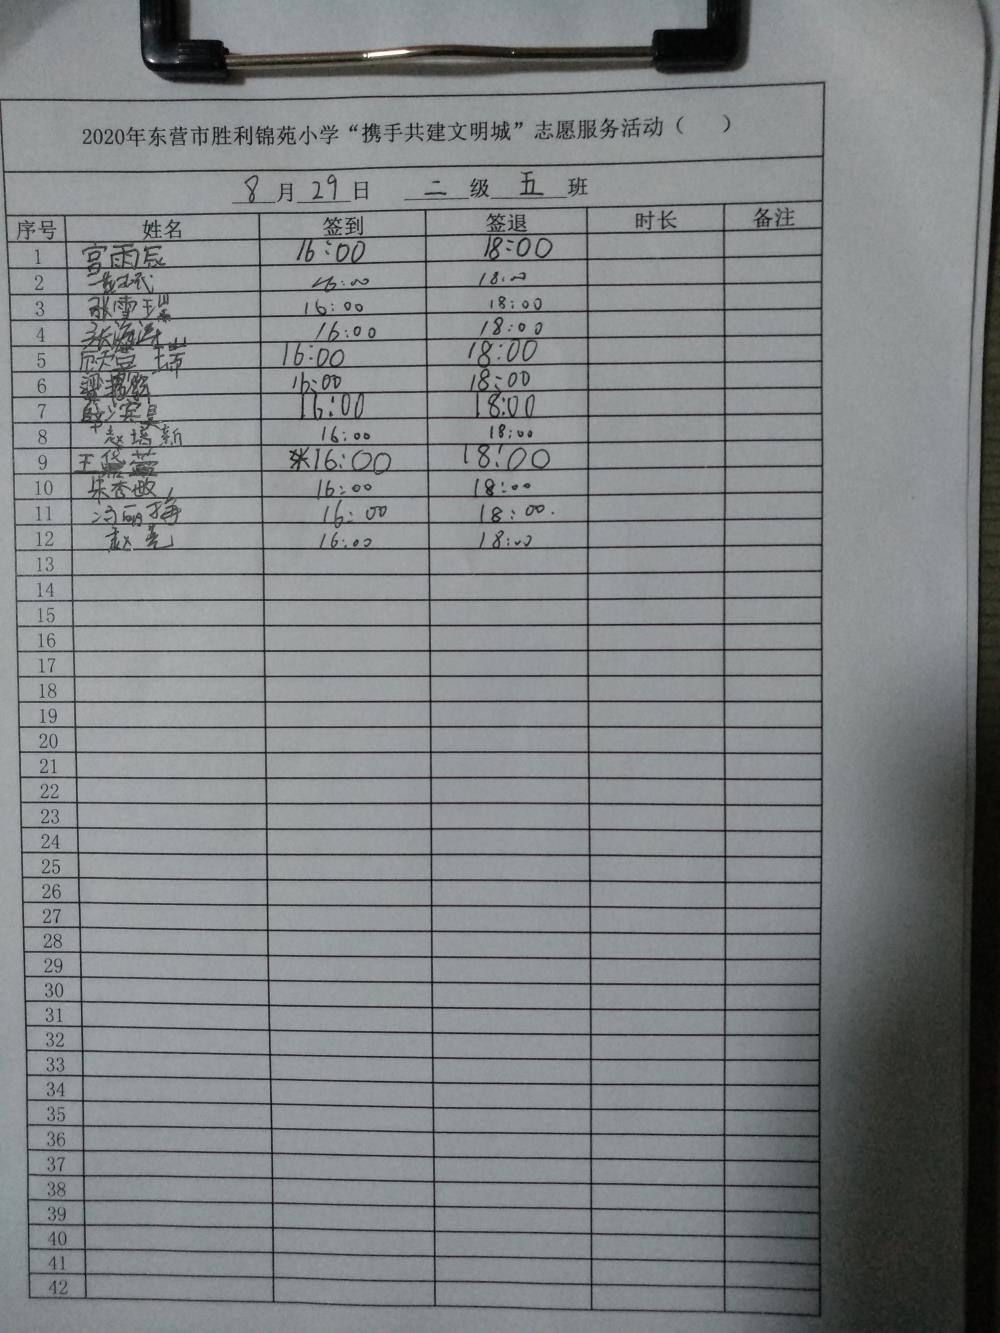 2020年东营市胜利锦苑小学“携手共建文明城”志愿服务活动（ ）
8月29日 二级五班
序号 姓名 签到 签退 时长 备注
1 宫雨辰 16:00 18:00
2 16:00 18:00
3 张雪 16:00 18:00
4 张海涛 16:00 18:00
5 16:00 18:00
6 16:00 18:00
7 16:00 18:00
8 赵培新 16:00 18:00
9 王 16:00 18:00
10 朱杏敏 16:00 18:00
11 冯丽梅 16:00 18:00.
12 赵亮 16:00 18:00
13
14
15
16
17
18
19
20
21
22
23
24
25
26
27
28
29
30
31
32
33
34
35
36
37
38
39
40
41
42